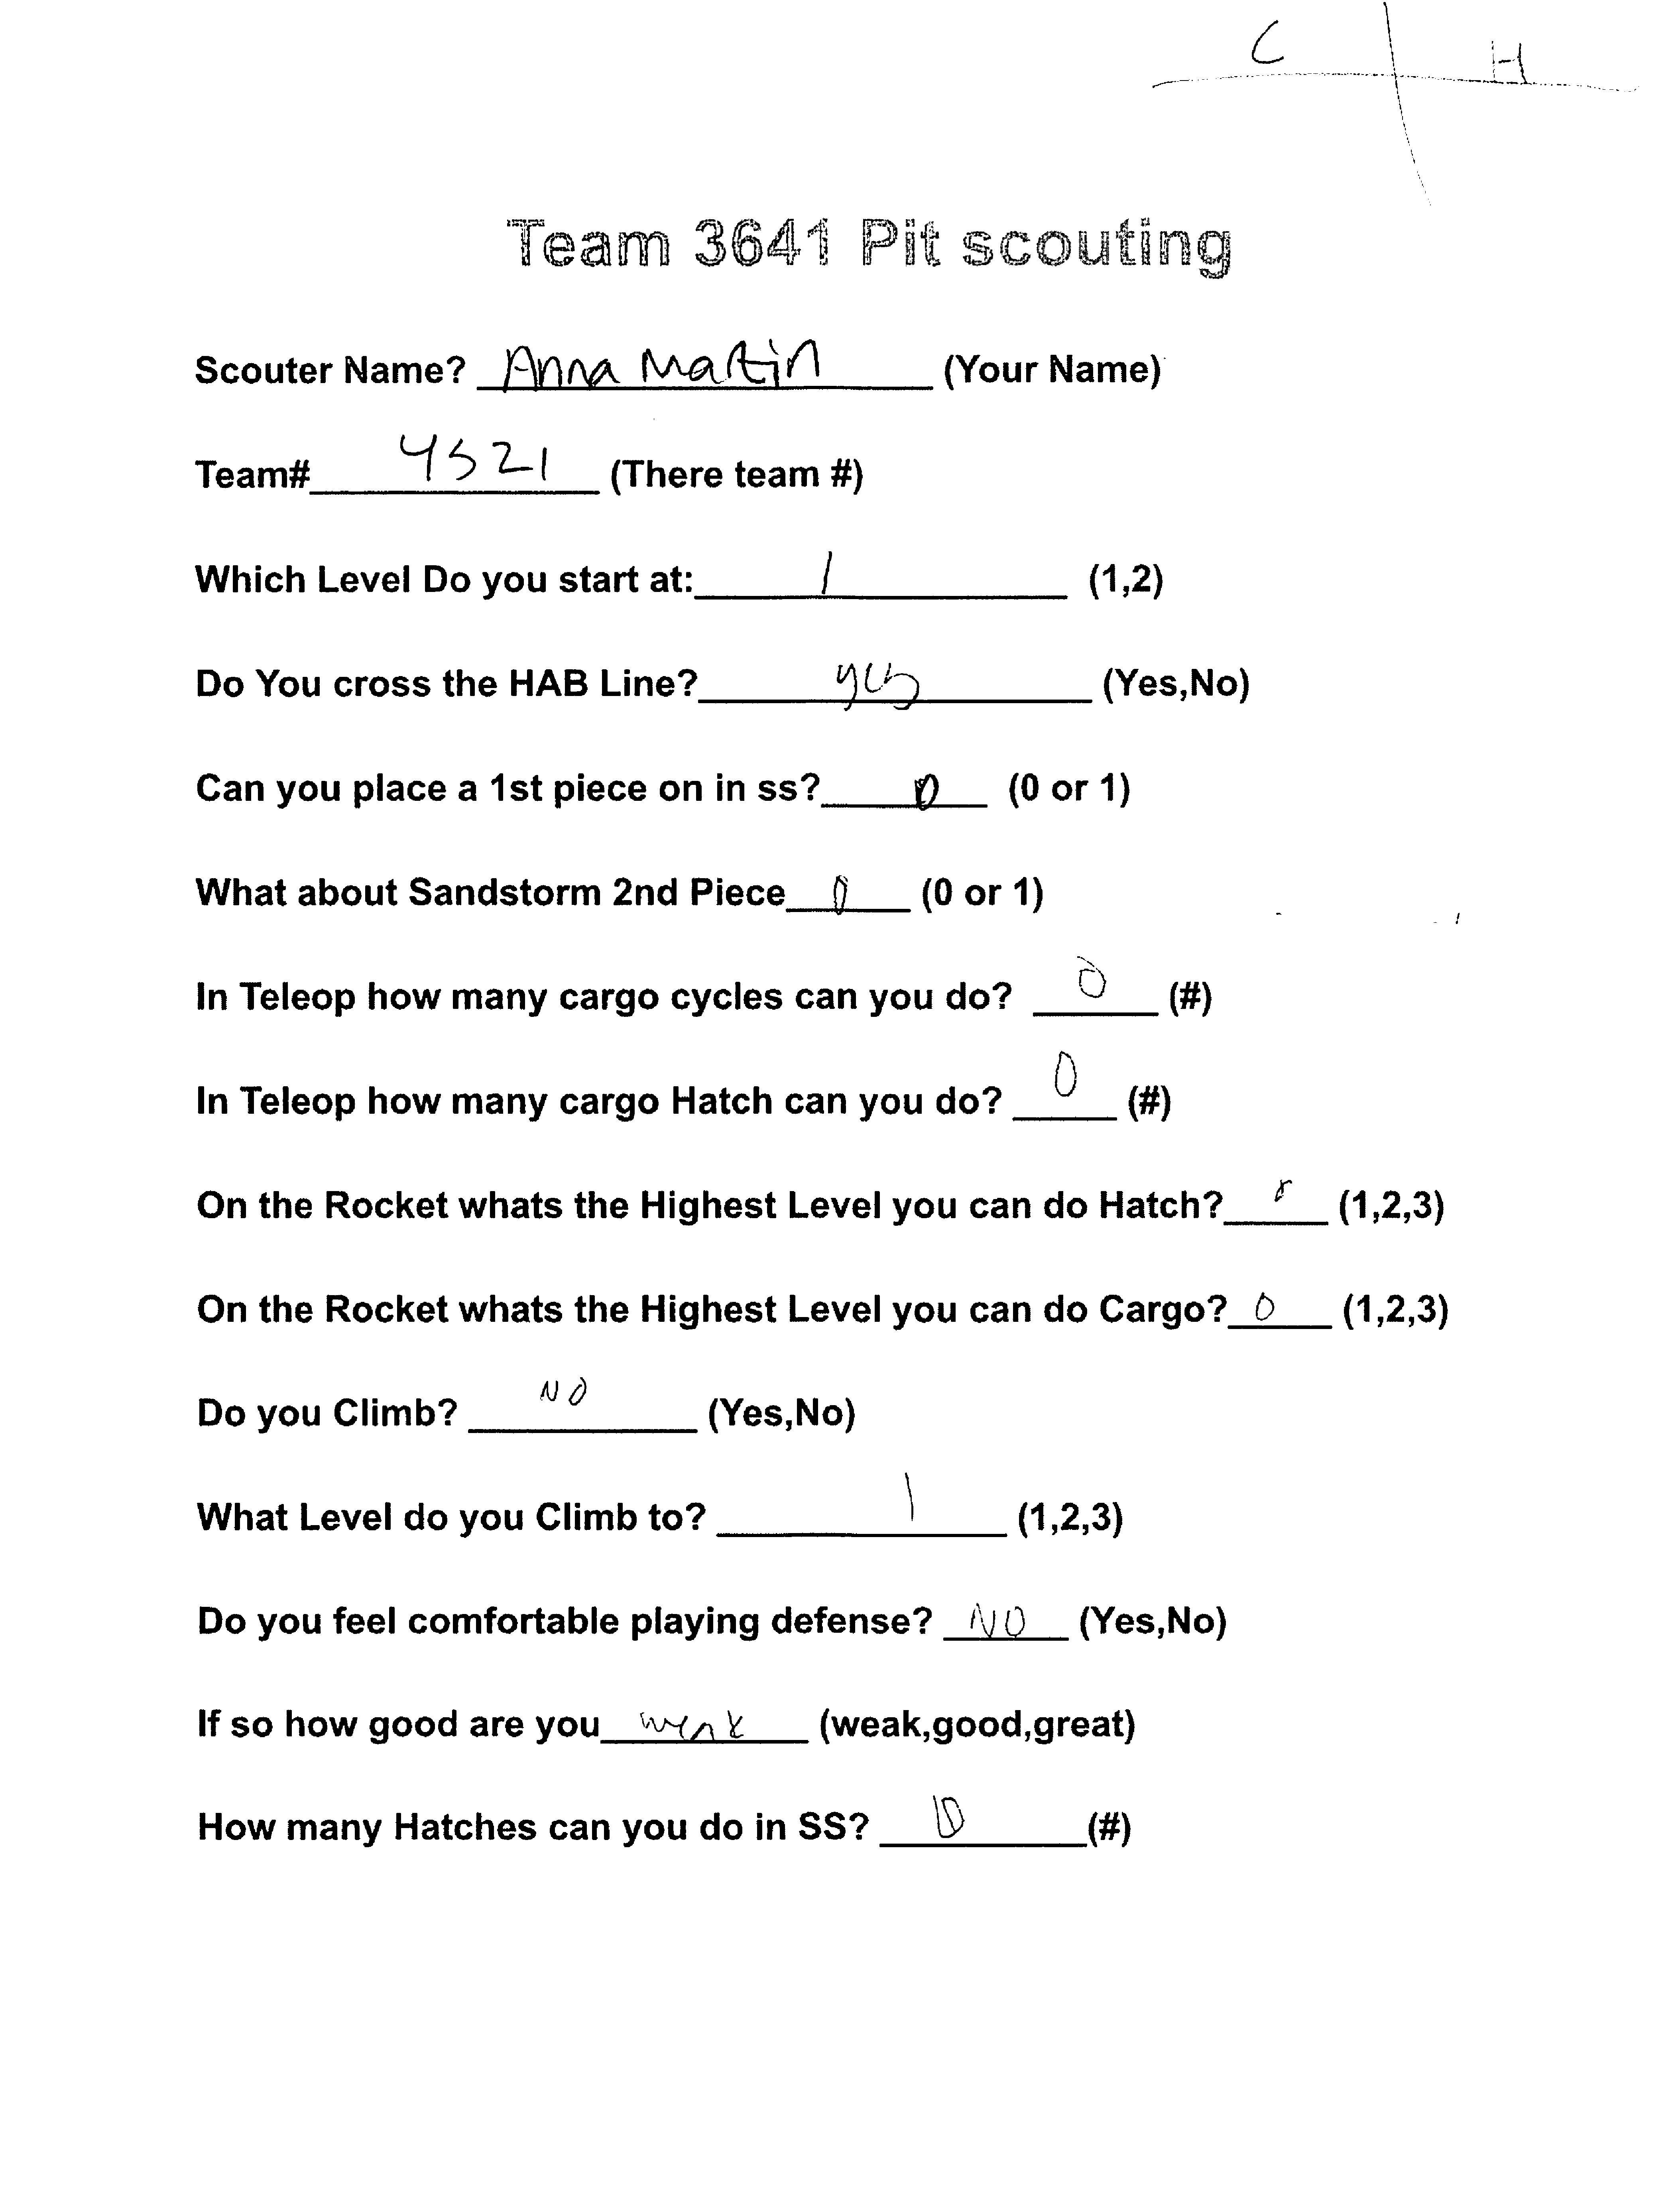 C H
Team 3641 Pit scouting
Scouter Name? Anna Martin (Your Name)
Team# 4521 (There team #)
Which Level Do you start at: 1 (1,2)
Do You cross the HAB Line? yes (Yes,No)
Can you place a 1st piece on in ss? 0 (0 or 1)
What about Sandstorm 2nd Piece 0 (0 or 1)
In Teleop how many cargo cycles can you do? 0 (#)
In Teleop how many cargo Hatch can you do? 0 (#)
On the Rocket whats the Highest Level you can do Hatch? (1,2,3)
On the Rocket whats the Highest Level you can do Cargo? 0 (1,2,3)
Do you Climb? NO (Yes,No)
What Level do you Climb to? 1 (1,2,3)
Do you feel comfortable playing defense? NO (Yes,No)
If so how good are you weak (weak,good,great)
How many Hatches can you do in SS? (#)